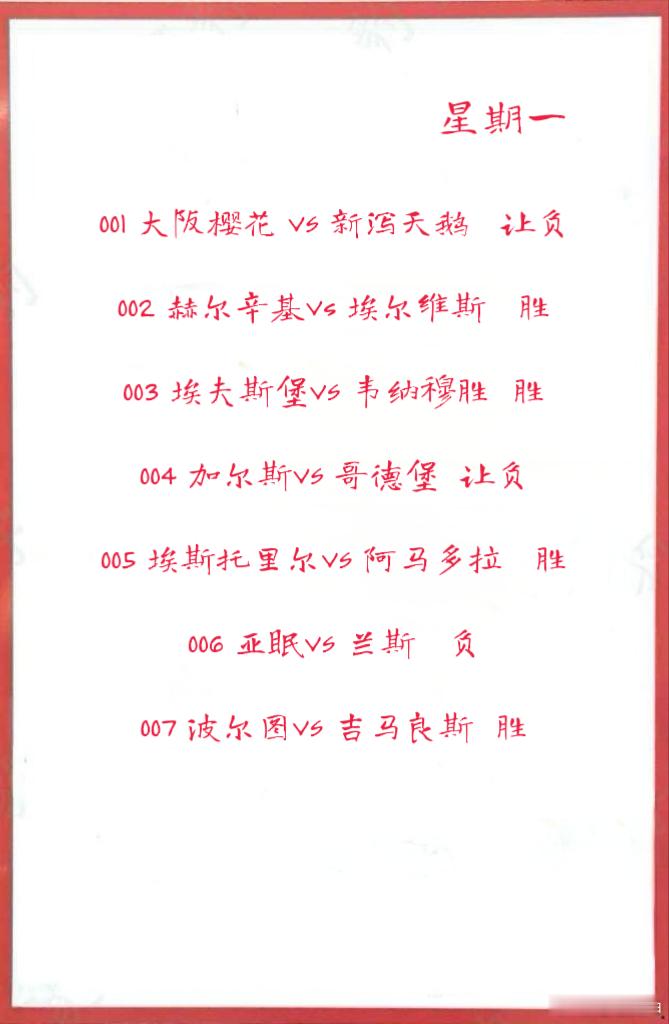 星期一
001 大阪樱花 vs 新泻天鹅 让负
002 赫尔辛基vs 埃尔维斯 胜
003 埃夫斯堡vs 韦纳穆胜 胜
004 加尔斯vs 哥德堡 让负
005 埃斯托里尔vs 阿马多拉 胜
006 亚眠vs 兰斯 负
007 波尔图vs 吉马良斯 胜